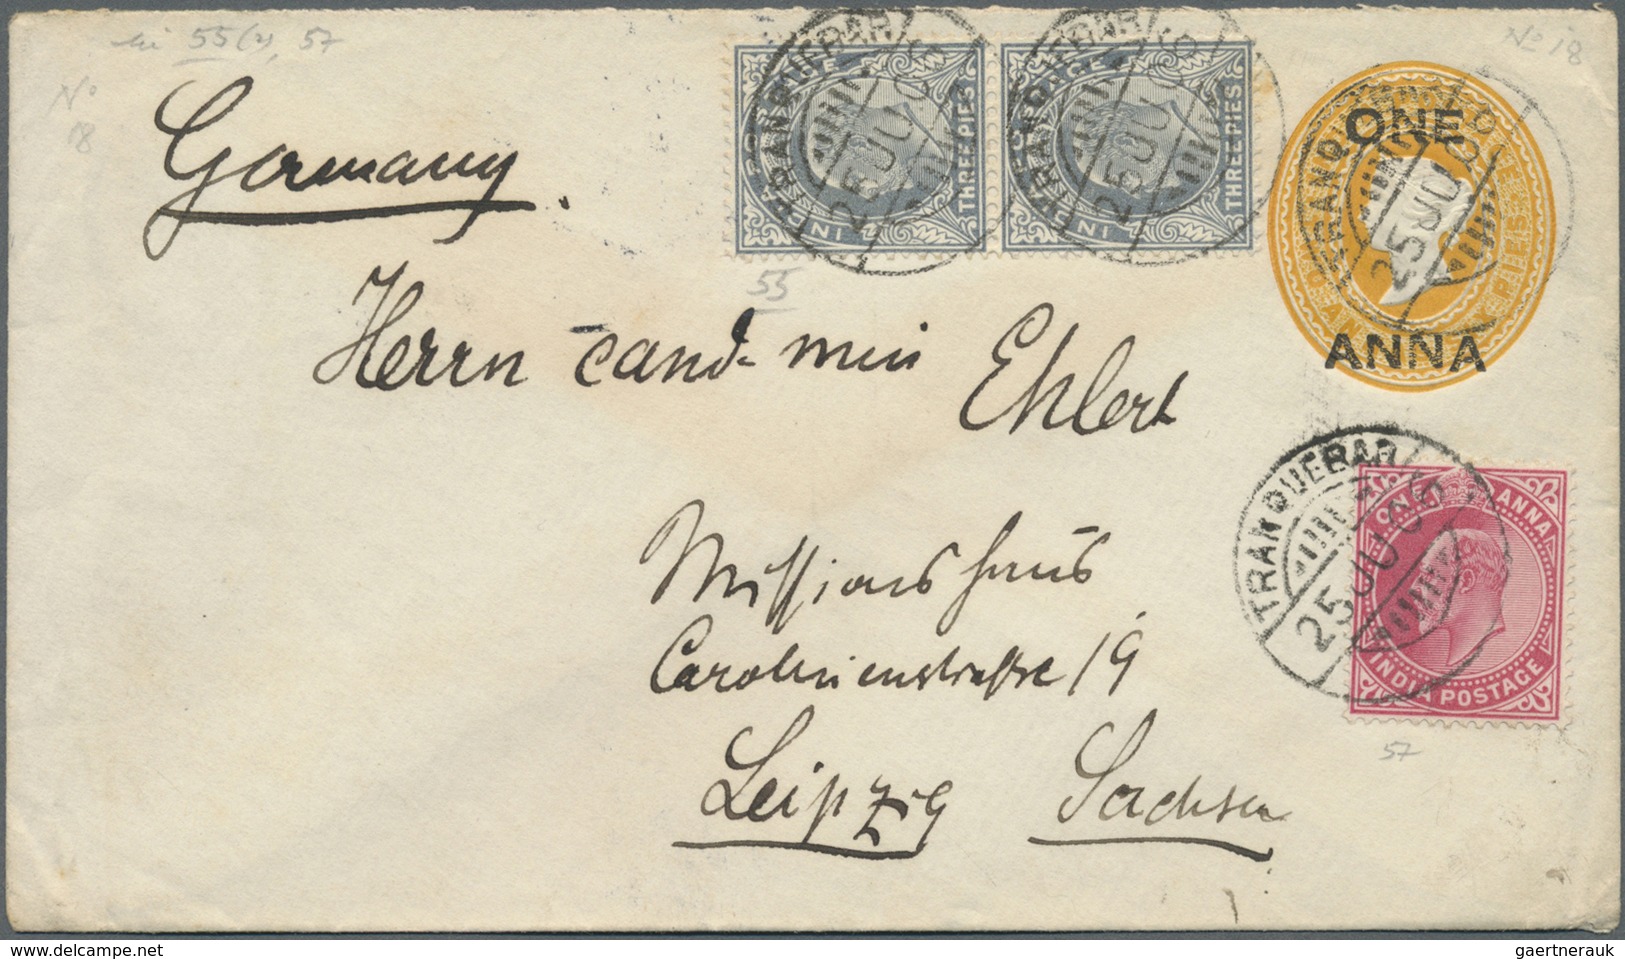 55(2), 57
No 18
No
18
Germany.
TRANQUEBAR
25 JU 06
THREE PIES
TRANQUEBAR
25 JU 06
THREE PIES
ONE
ANNA
TRANQUEBAR
25 JU 06
55
Herrn cand. min Ehlert
Missionshaus
Carolinenstrasse 19
Leipzig Sachsen
TRANQUEBAR
25 JU 06
ONE ANNA
INDIA POSTAGE
57
www.delcampe.net
gaertnerauk